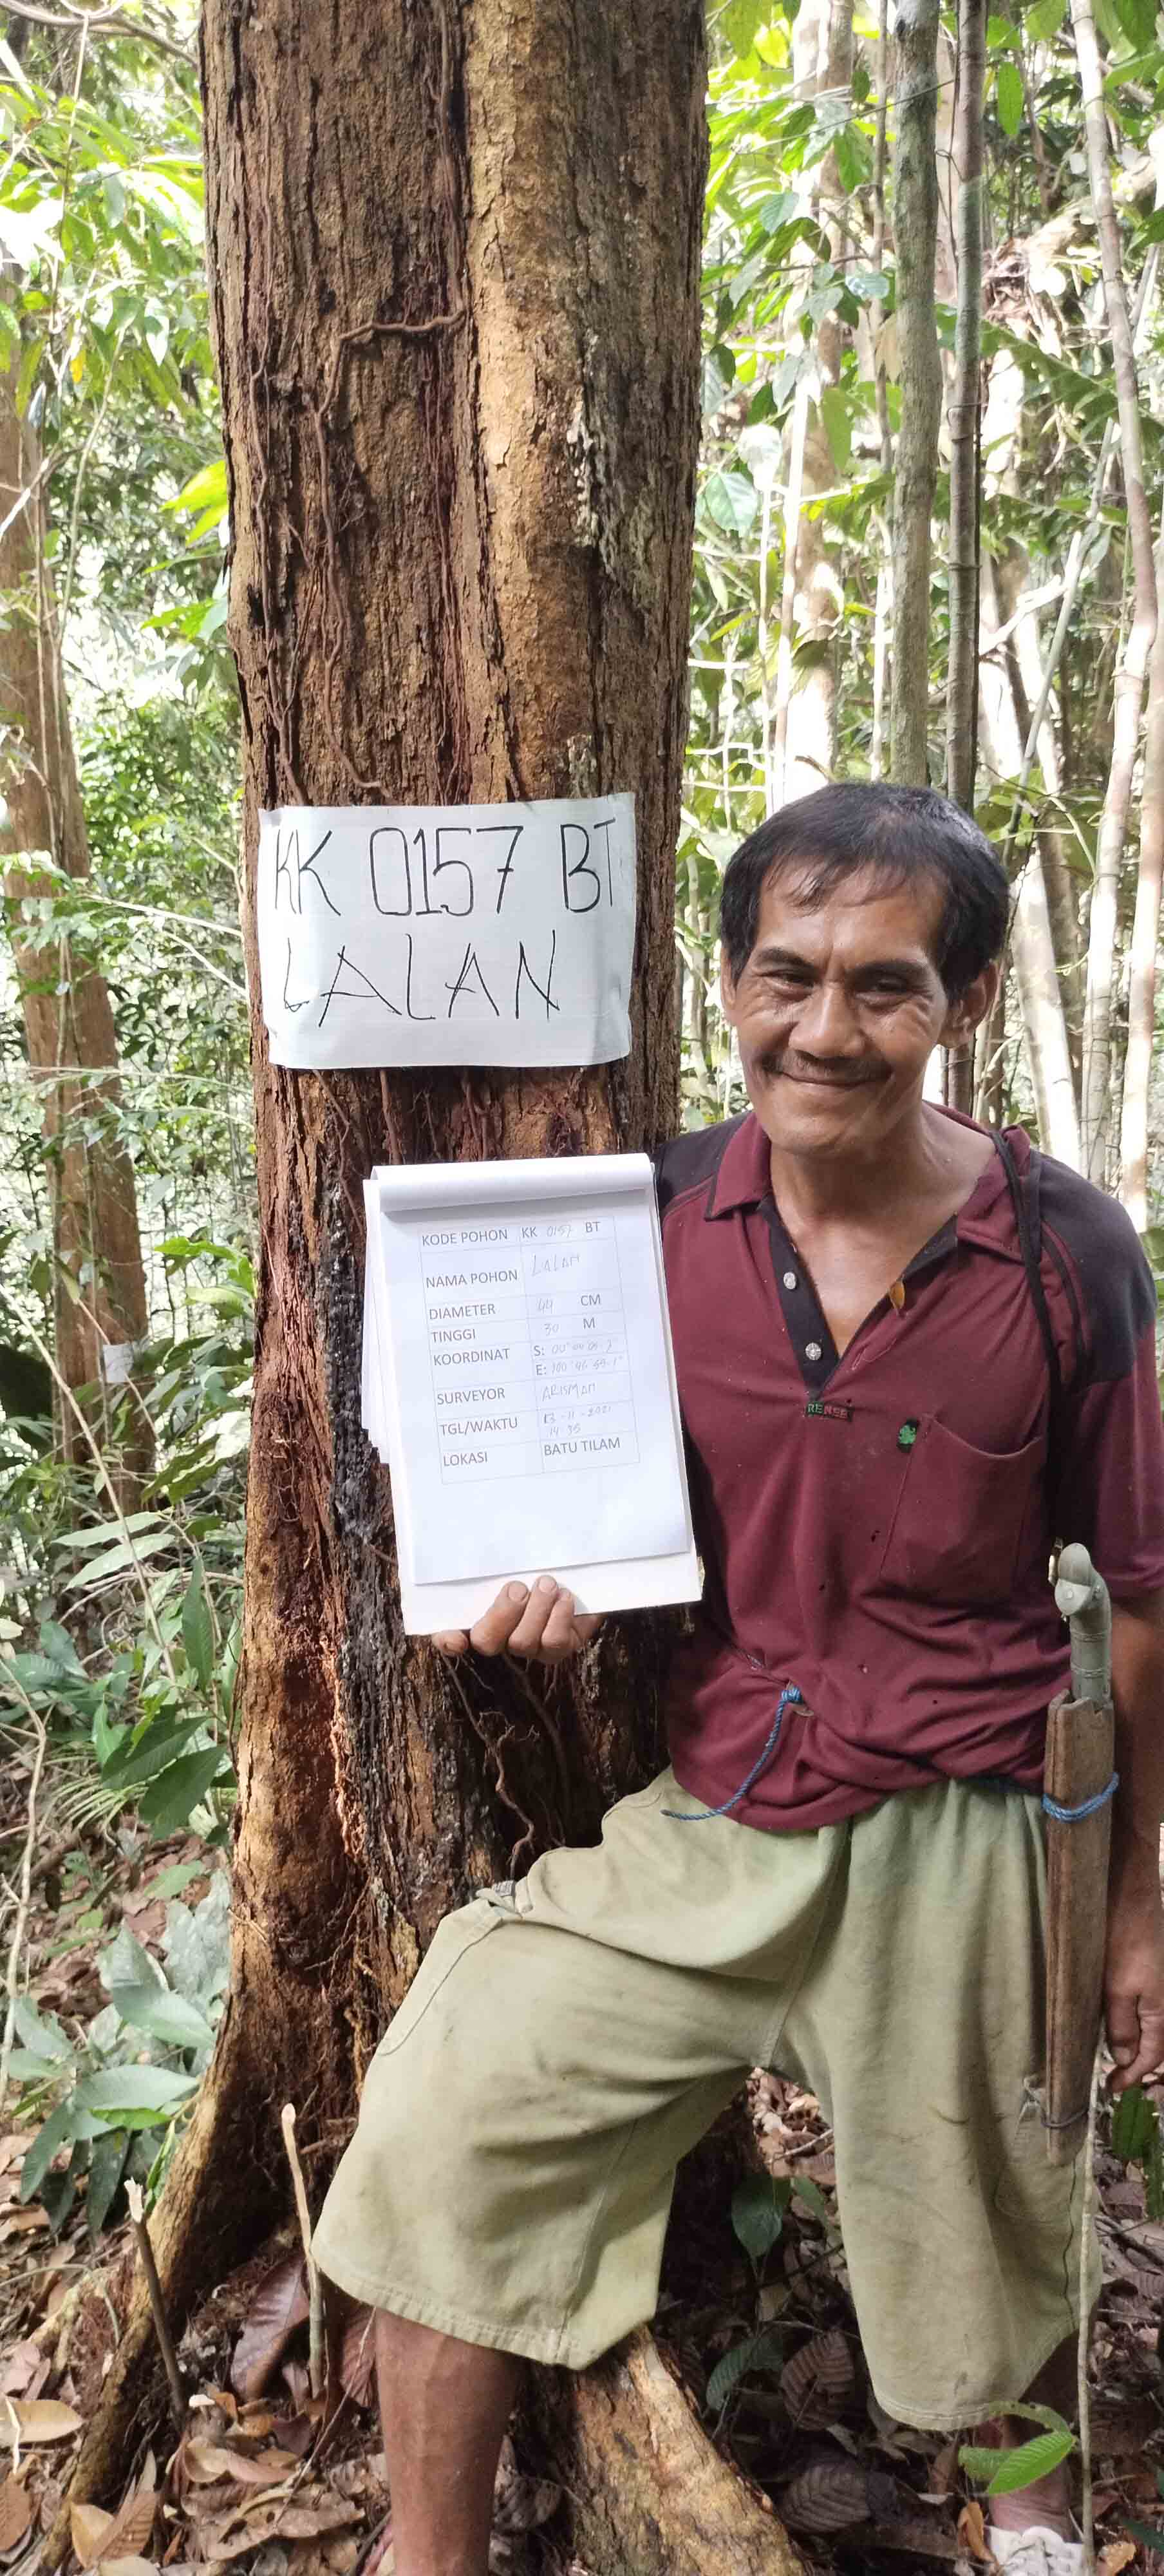 KK 0157 BT
LALAN
KODE POHON KK 0157 BT
NAMA POHON LALAN
DIAMETER 44 CM
TINGGI 30 M
KOORDINAT S:
E: 100°46'55.1"
SURVEYOR ARISMAN
TGL/WAKTU 13-11-2021
14.35
LOKASI BATU TILAM
RENSE